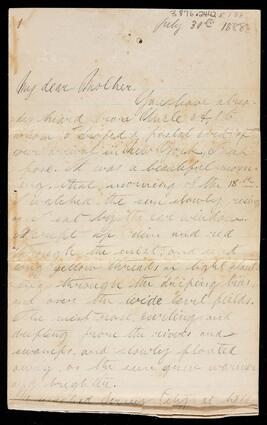 1
3376.2442
July 30th 1888
My dear Mother.
You have alrea-
dy heard from Uncle
whom I dropped a postal card of
our arrival in New York, I sup-
pose. It was a beautiful morn-
ing, that morning of the 18th.
I watched the sun slowly rising
as I sat by the car window.
It crept up dim and red
through the mist, and sent
long yellow threads of light slant-
ing through the dripping trees,
and over the wide level fields.
The mist rose, curling and
from the rivers and
swamps, and slowly floated
away, as the sun grew warmer
and brighter.
We reached Jersey City at